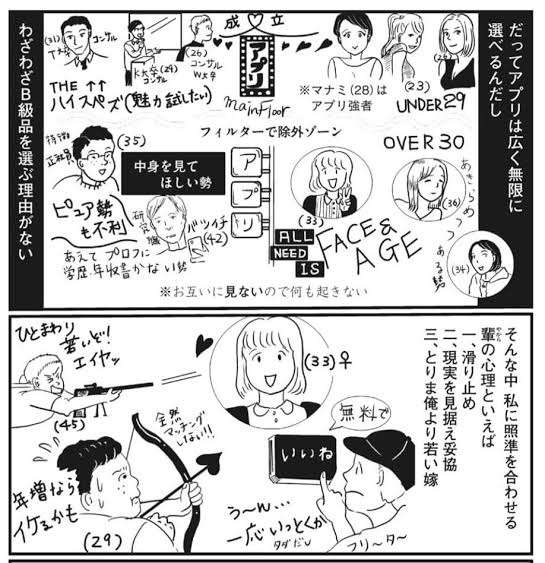 だってアプリは広く無限に
選べるんだし
成♡立
アプリ
mainfloor
(31)
コンサル
K大卒(29)
コンサル
(26)
コンサル
W大卒
THE↑↑
ハイスペズ(魅力試したい)
※マナミ(28)は
アプリ強者
(23)
UNDER29
わざわざB級品を選ぶ理由がない
フィルターで除外ゾーン
アプリ
(35)
正社員
中身を見て
ほしい勢
ピュア勢
も不利
研究職
バツイチ
(42)
あえてプロフに
学歴・年収書かない勢
OVER30
(33)
(36)
あきらめつつ
ある勢
(34)
ALL
NEED
IS
FACE&
AGE
※お互いに見ないので何も起きない
そんな中 私に照準を合わせる
輩の心理といえば
やから
一、滑り止め
二、現実を見据え妥協
三、とりま俺より若い嫁
ひとまわり
若いど!
エイヤッ
(45)
(33)♀
全然
マッチング
しない!!
年増なら
イケるかも
(29)
無料で
いいね
う〜ん…
一応いっとくか
タダだし
フリ〜タ〜